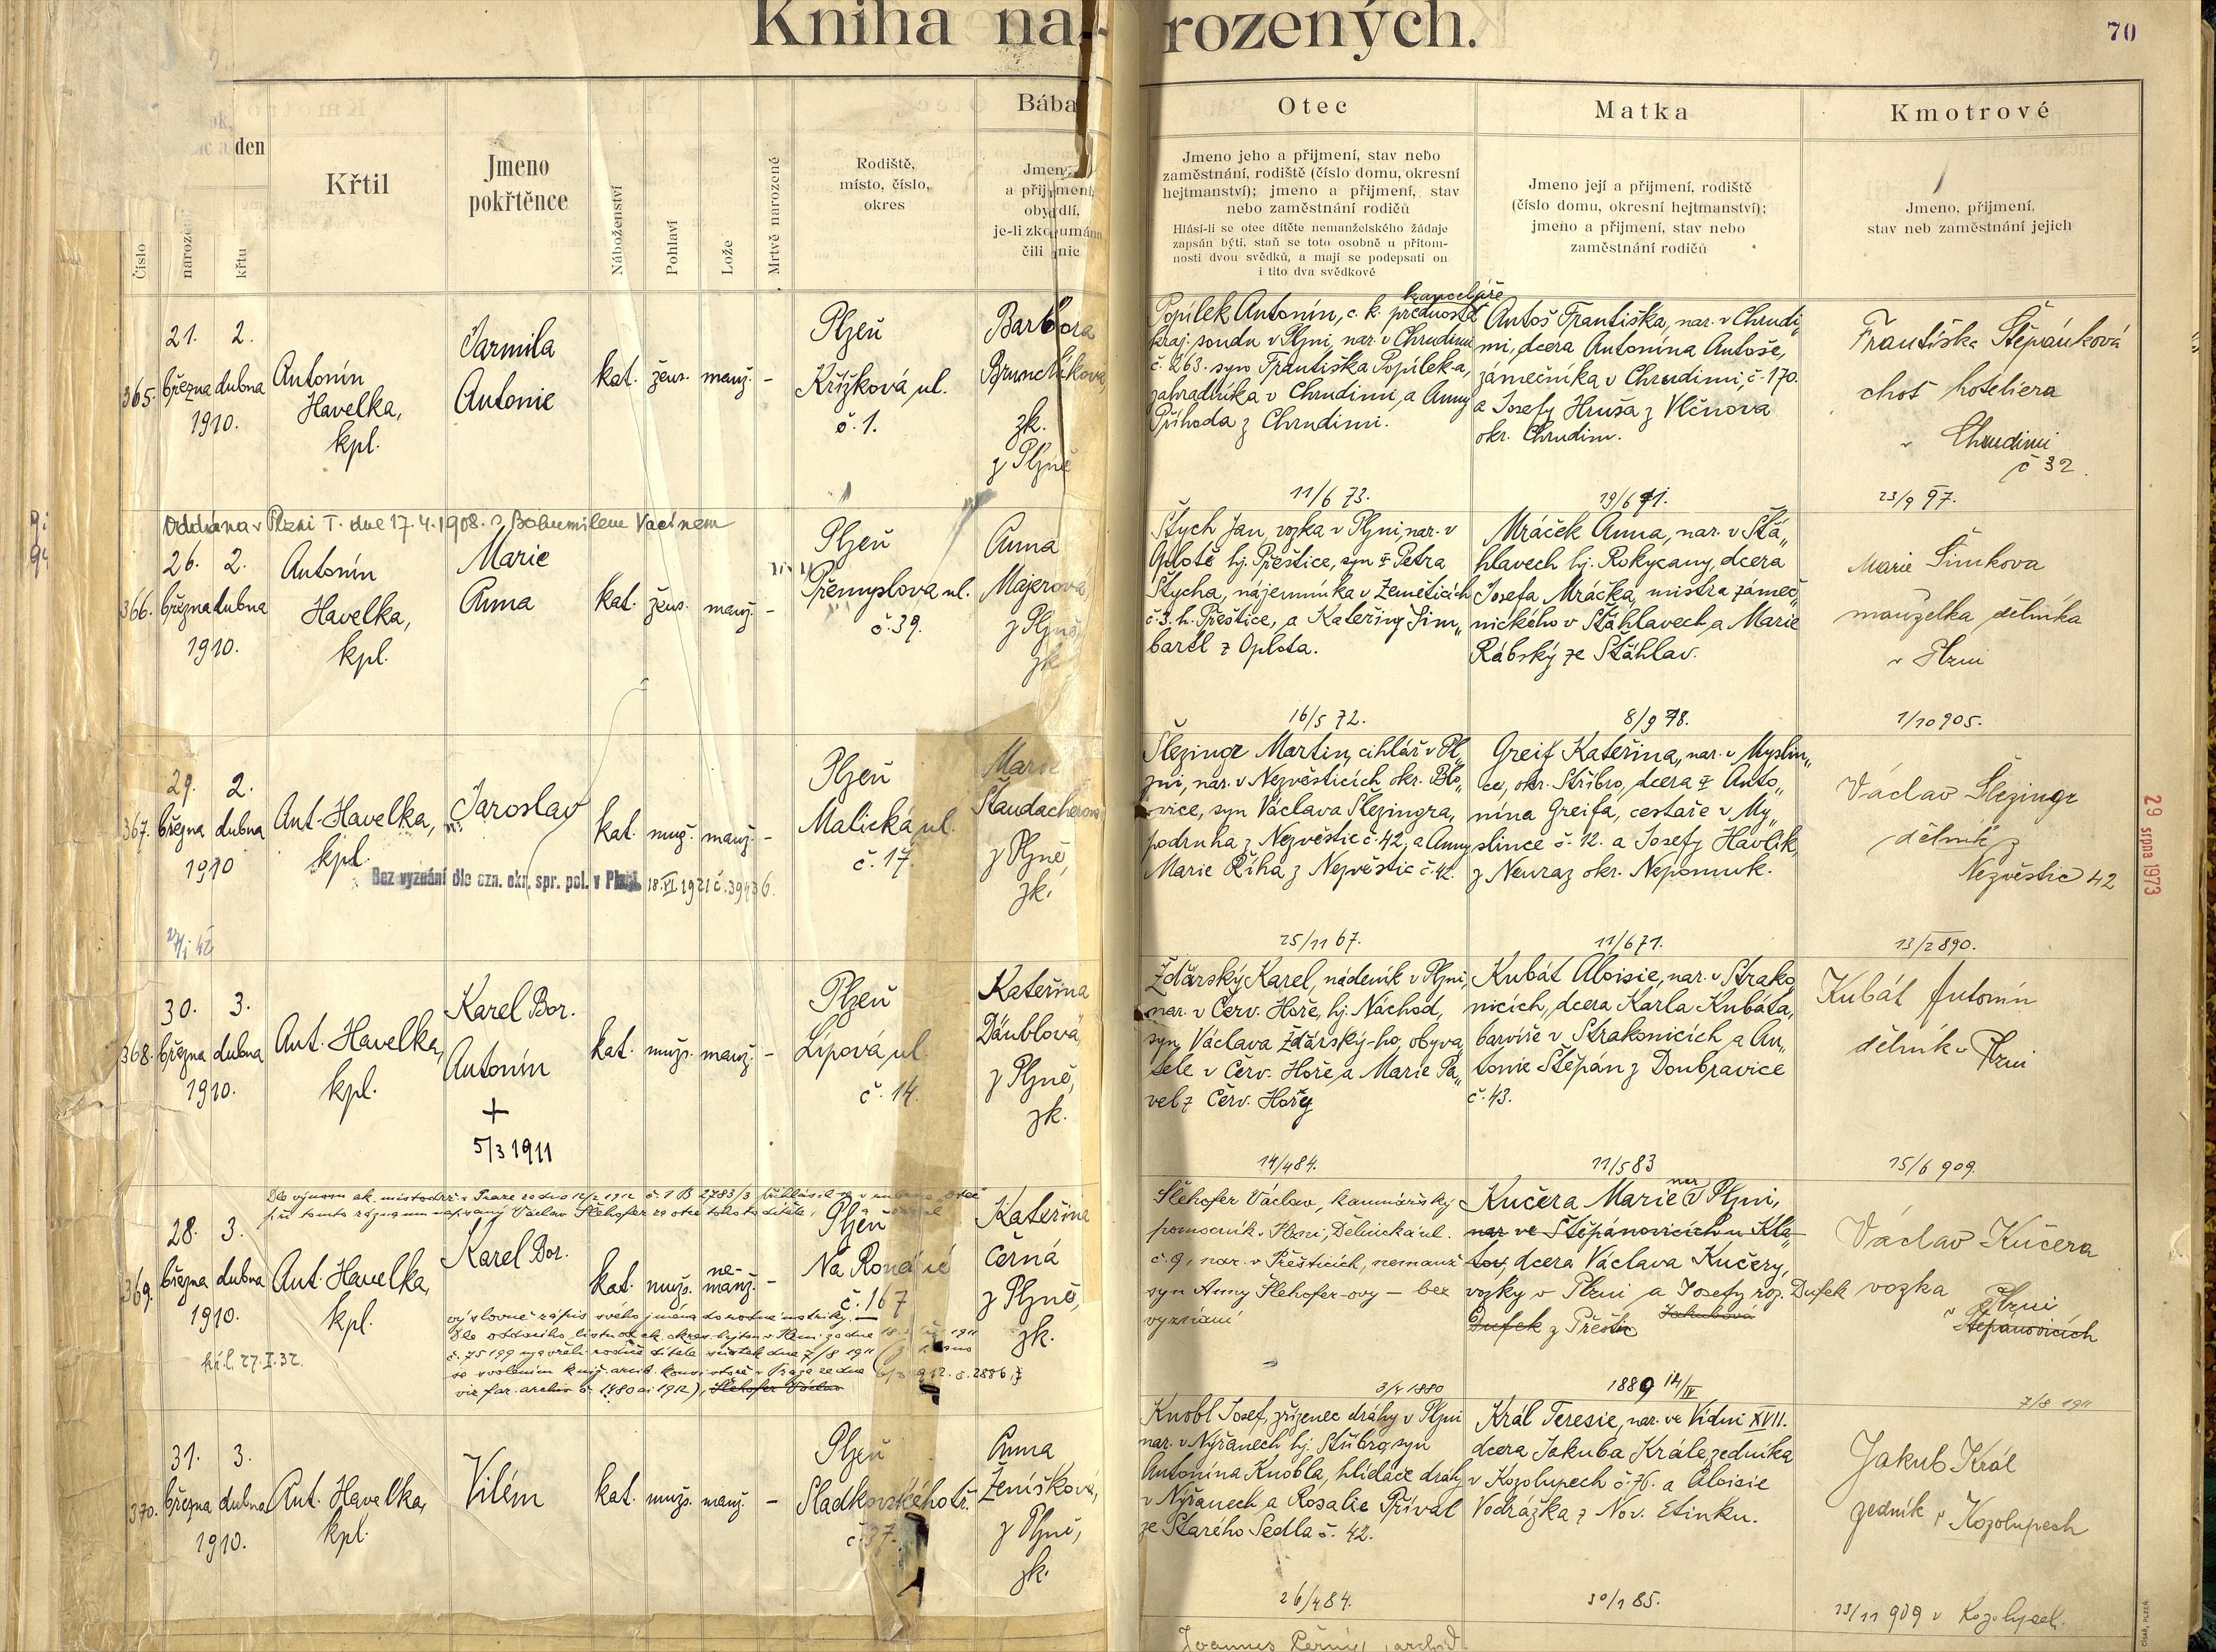 Kniha na-
rozených.
70
den
křtu
Číslo
Křtil
Jmeno
pokřtěnce
Náboženství
Pohlaví
Lože
Mrtvě narozené
Rodiště,
místo, číslo,
okres
Bába
a přijmení,
obydlí,
je-li zkoumána
čili nie
Otec
Jmeno jeho a přijmení, stav nebo
zaměstnání, rodiště (číslo domu, okresní
hejtmanství); jmeno a přijmení, stav
nebo zaměstnání rodičů
Hlásí-li se otec dítěte nemanželského žádaje
zapsán býti, staň se toto osobně u přítom-
nosti dvou svědků, a mají se podepsati on
i tito dva svědkové
Matka
Jmeno její a přijmení, rodiště
(číslo domu, okresní hejtmanství);
jmeno a přijmení, stav nebo
zaměstnání rodičů
Kmotrové
Jmeno, přijmení,
stav neb zaměstnání jejich
365.
21. 2.
března dubna
1910.
Antonín
Havelka,
kpl.
Jarmila
Antonie
kat. žens. manž. -
Plzeň
Křížková ul.
č. 1.
Barbora
Brunclíková,
zk.
z Plzně
kanceláře
Popílek Antonín, c. k. přednosta
kraj. soudu v Plzni, nar. v Chrudimi
č. 263. syn Františka Popílek-a,
zahradníka v Chrudimi, a Anny
Příhoda z Chrudimi.
11/6 73.
Antoš Františka, nar. v Chrudi
mi, dcera Antonína Antoše,
zámečníka v Chrudimi, č. 170.
a Josefy Hruša z Vlčnova
okr. Chrudim.
19/6 71.
Františka Štěpánková
choť hoteliera
v Chrudimi
č 32.
23/9 97.
Oddána v Plzni I. dne 17.4.1908. s Bohumilem Vacínem
366.
26. 2.
března dubna
1910.
Antonín
Havelka,
kpl.
Marie
Anna
kat. žens. manž. -
Plzeň
Přemyslova ul.
č. 39.
Anna
Majerová,
z Plzně,
zk
Štych Jan, vozka v Plzni, nar. v
Oplotě hj. Přeštice, syn Petra
Štycha, nájemníka v Zeměticích
č. 3. h. Přeštice, a Kateřiny Šim„
bartl z Oplota.
16/5 72.
Mráček Anna, nar. v Štá„
hlavech hj. Rokycany, dcera
Josefa Mráčka, mistra zámeč„
nického v Štáhlavech, a Marie
Rábský ze Štáhlav.
8/9 78.
Marie Šimkova
manželka dělníka
v Plzni
1/10 905.
367.
29. 2.
března dubna
1910
Ant. Havelka,
kpl.
Jaroslav
kat. muž. manž. -
Bez vyznání dle ozn. okr. spr. pol. v Plzni 18.VI 1921 č. 39436.
Plzeň
Malická ul.
č. 17.
Marie
Štaudacherova
z Plzně,
zk.
Šlezingr Martin, cihlář v Pl„
zni, nar. v Nezvěsticích okr. Blo„
vice, syn Václava Šlezingra,
podruha z Nezvěstic č. 42, a Anny
Marie Říha z Nezvěstic č. 42.
25/11 67.
Greif Kateřina, nar. v Myslin„
ce, okr. Stříbro, dcera Anto„
nína Greifa, cestáře v My„
slince č. 12. a Josefy Havlík,
z Neuraz okr. Nepomuk.
11/6 71.
Václav Šlezingr
dělník z
Nezvěstic 42
13/2 890.
29 srpna 1973
368.
30. 3.
března dubna
1910.
Ant. Havelka,
kpl.
Karel Bor.
Antonín
+
5/3 1911
kat. mužs. manž. -
Plzeň
Lipová ul.
č. 14.
Kateřina
Däublová,
z Plzně,
zk.
Žďárský Karel, nádeník v Plzni,
nar. v Červ. Hoře, hj. Náchod,
syn Václava Žďárský-ho, obyva„
tele v Červ. Hoře, a Marie Pa„
vel z Červ. Hory
14/4 84.
Kubát Aloisie, nar. v Strako
nicích, dcera Karla Kubáta,
barvíře v Strakonicích a An„
tonie Štěpán z Doubravice
č. 43.
11/5 83
Kubát Antonín
dělník v Plzni
15/6 909.
369.
28. 3.
března dubna
1910.
Ant. Havelka,
kpl.
Karel Bor.
kat. mužs. ne-
manž. -
Plzeň
č. 167
Kateřina
Černá
z Plzně,
zk.
Šlehofer Václav, kamnářský
pomocník v Plzni, Dělnická ul.
č. 9, nar. v Přešticích, nemanž
syn Anny Šlehofer-ovy — bez
vyznání
3/4 1880
Kučera Marie nar v Plzni,
nar ve Štěpánovicích u Kla
tov, dcera Václava Kučery,
vozky v Plzni a Josefy roz. Dufek
Dufek z Přeštic Jakubová
1889 14/IV
Václav Kučera
vozka
v Plzni
Štěpánovicích
7/8 1911
370.
31. 3.
března dubna
1910.
Ant. Havelka,
kpl.
Vilém
kat. mužs. manž. -
Plzeň
Sladkovského tř.
č. 37.
Anna
Ženíšková,
z Plzně,
zk.
Knobl Josef, zřízenec dráhy v Plzni
nar. v Nýřanech hj. Stříbro, syn
Antonína Knobla, hlídače dráhy
v Nýřanech, a Rosalie Příval
ze Starého Sedla č. 42.
26/4 84.
Král Teresie, nar. ve Vídni XVII.
dcera Jakuba Krále, zedníka
v Kozolupech č. 76. a Aloisie
Vodrážka z Nov. Etinku.
30/1 85.
Jakub Král
zedník v Kozolupech
13/11 909 v Kozolupech.